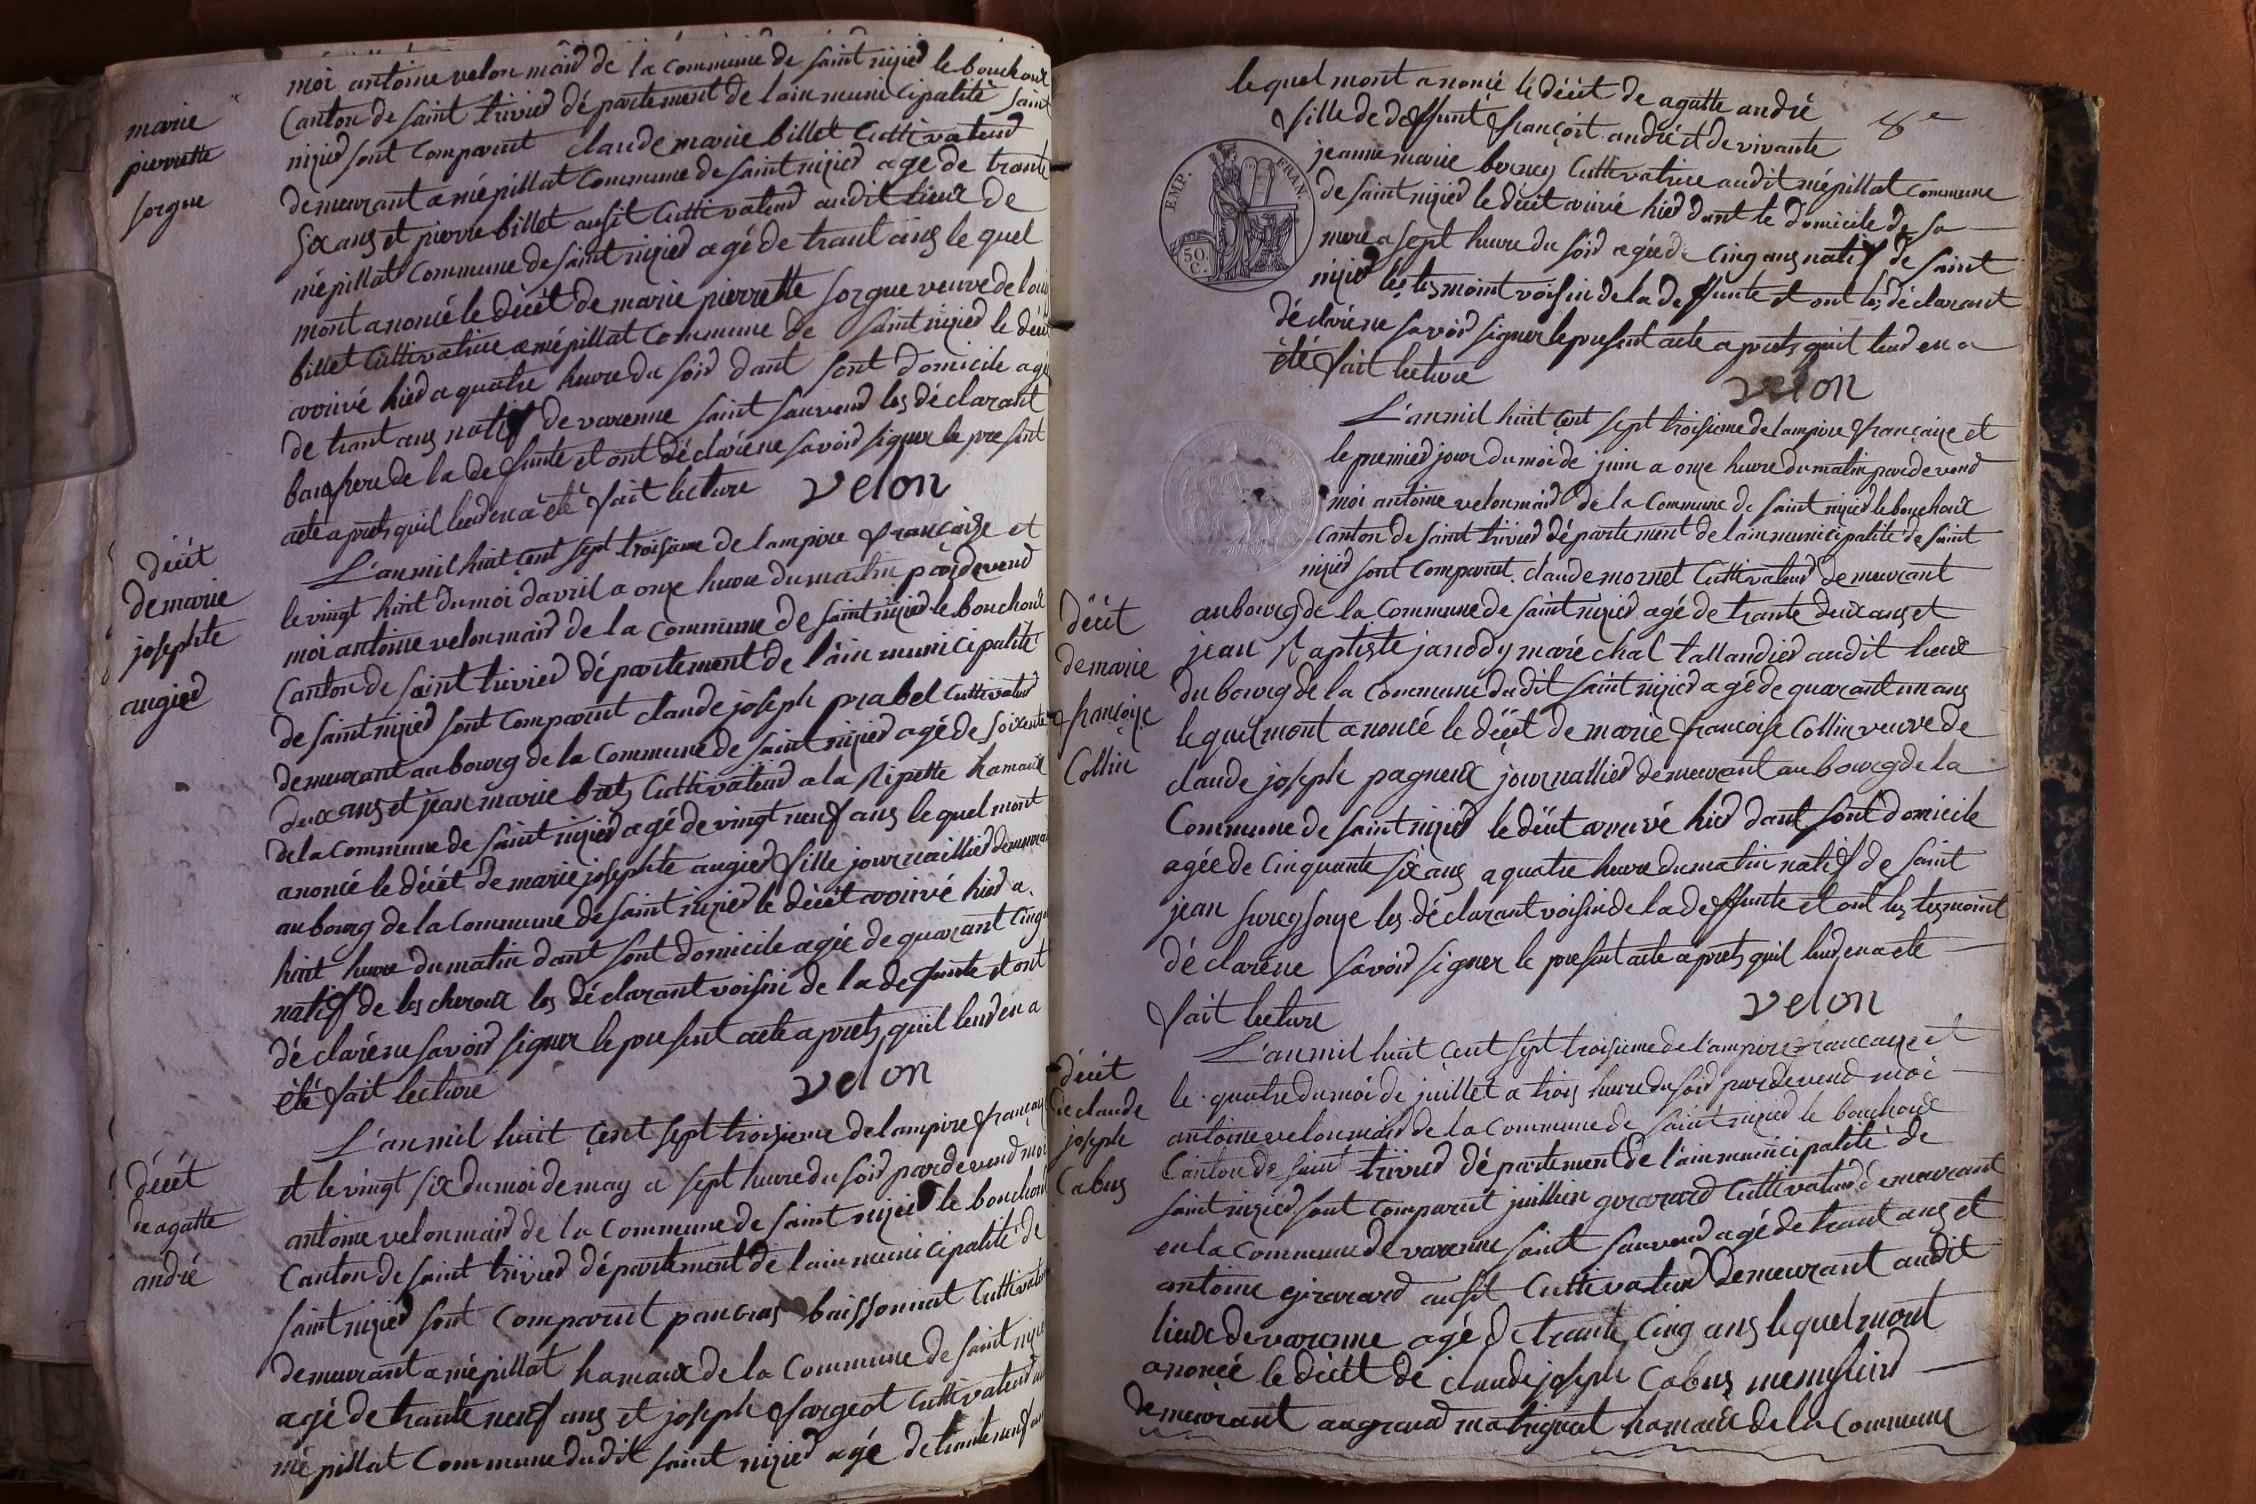 moi antoine velon maird de la commune de saint nizied le bouchoux
marie
pierrette
sorgue
Canton de saint trivied département de lain municipalité saint
nizied sont comparent claude marie billet Cultivateurd
demeurant a mépillat commune de saint nizied agé de trante
six ans et pierre billet ausit Cultivateurd audit lieux de
mépillat commune de saint nizied agé de trant ans le quel
mont anoncé le décét de marie pierrette sorgue veuve de louis
billet Cultivatrice a mépillat commune de saint nizied le décét
arrivé hied a quatre heure du soird dant sont domicile agé
de trant ans natif de varenne saint sauveurd les déclarant
baufrere de la defunte et ont déclaréne savoird signer le present
acte aprets quil leurd en a été fait lecture velon
décét
de marie
josephte
augied
L'an mil huit cent sept troisieme de lampire française et
le vingt huit du moi davril a onze heure du matin pardevend
moi antoine velon maird de la commune de saint nizied le bouchoux
Canton de saint trivied département de l'ain municipalité
de saint nizied sont comparent claude joseph prabel Cultivateurd
demeurant au bourg de la commune de saint nizied agé de soixente
deux ans et jean marie brets Cultivateurd a la ripette hamaux
de la commune de saint nizied agé de vingt neuf ans le quel mont
anoncé le décét de marie josephte augied fille journaillied demeurant
au bourg de la commune de saint nizied le décét arrivé hied a
huit heure du matin dant sont domicile agée de quarant cinq
natif de les cheroux les déclarant voisin de la defunte et ont
déclaréne savoird signer le present acte aprets quil leurd en a
été fait lecture velon
décét
de agatte
andré
L'an mil huit cent sept troisieme de lampire français
et le vingt six du moi de may a sept heure du soird pardevend moi
antoine velon maird de la commune de saint nizied le bouchoux
Canton de saint trivied département de lain municipalité de
saint nizied sont comparent pancras baissonnat Cultivateurd
demeurant a mépillat hamaux de la commune de saint nizied
agé de trante neuf ans et joseph fargeot Cultivateurd
mépillat commune dudit saint nizied agé de trante neuf ans
le quel mont anoncé le décét de agatte andré
8e
fille de deffunt françoit andré et de vivante
jeanne marie bernes Cultivatrice audit mépillat commune
EMP. FRAN.
50.
C.
de saint nizied le décét arrivé hied dant le domicile de sa
mere a sept heure du soird agée de cinq ans natif de saint
nizied les tesmoint voisin de la deffunte et ont les déclarant
déclaréne savoird signer le present acte aprets quil leurd en a
été fait lecture velon
L'an mil huit cent sept troisieme de lampire française et
le premied jour du moi de juin a onze heure du matin pardevend
moi antoine velon maird de la commune de saint nizied le bouchoux
canton de saint trivied département de lain municipalité de saint
nizied sont comparent claude mornet Cultivateurd demeurant
décét
de marie
françoise
Collin
au bourg de la commune de saint nizied agé de trante deux ans et
jean Baptiste janody maréchal tallandied audit lieux
du bourg de la commune dudit saint nizied agé de quarant un ans
le quel mont anoncé le décét de marie françoise Collin veuve de
claude joseph pagneux journallied demeurant au bourg de la
Commune de saint nizied le décét arrivé hied dant sont domicile
agée de cinquante six ans a quatre heure du matin natif de saint
jean sureyssouze les déclarant voisin de la deffunte et ont les tesmoint
déclaréne savoird signer le present acte aprets quil leurd en a eté
fait lecture velon
décét
de claude
joseph
Cabus
L'an mil huit cent sept troisieme de l'ampire française et
le quatre du moi de juillet a trois heure du soird pardevend moi
antoine velon maird de la commune de saint nizied le bouchoux
Canton de saint trivied département de l'ain municipalité de
saint nizied sont comparent juillien girarard Cultivateurd demeurant
en la commune de varenne saint sauveurd agé de trant ans et
antoine girarard ausit Cultivateurd demeurant audit
lieux de varenne agé de trante cinq ans le quel mont
anoncé le décét de claude joseph Cabus menusierd
demeurant au grand matrignat hamaux de la commune